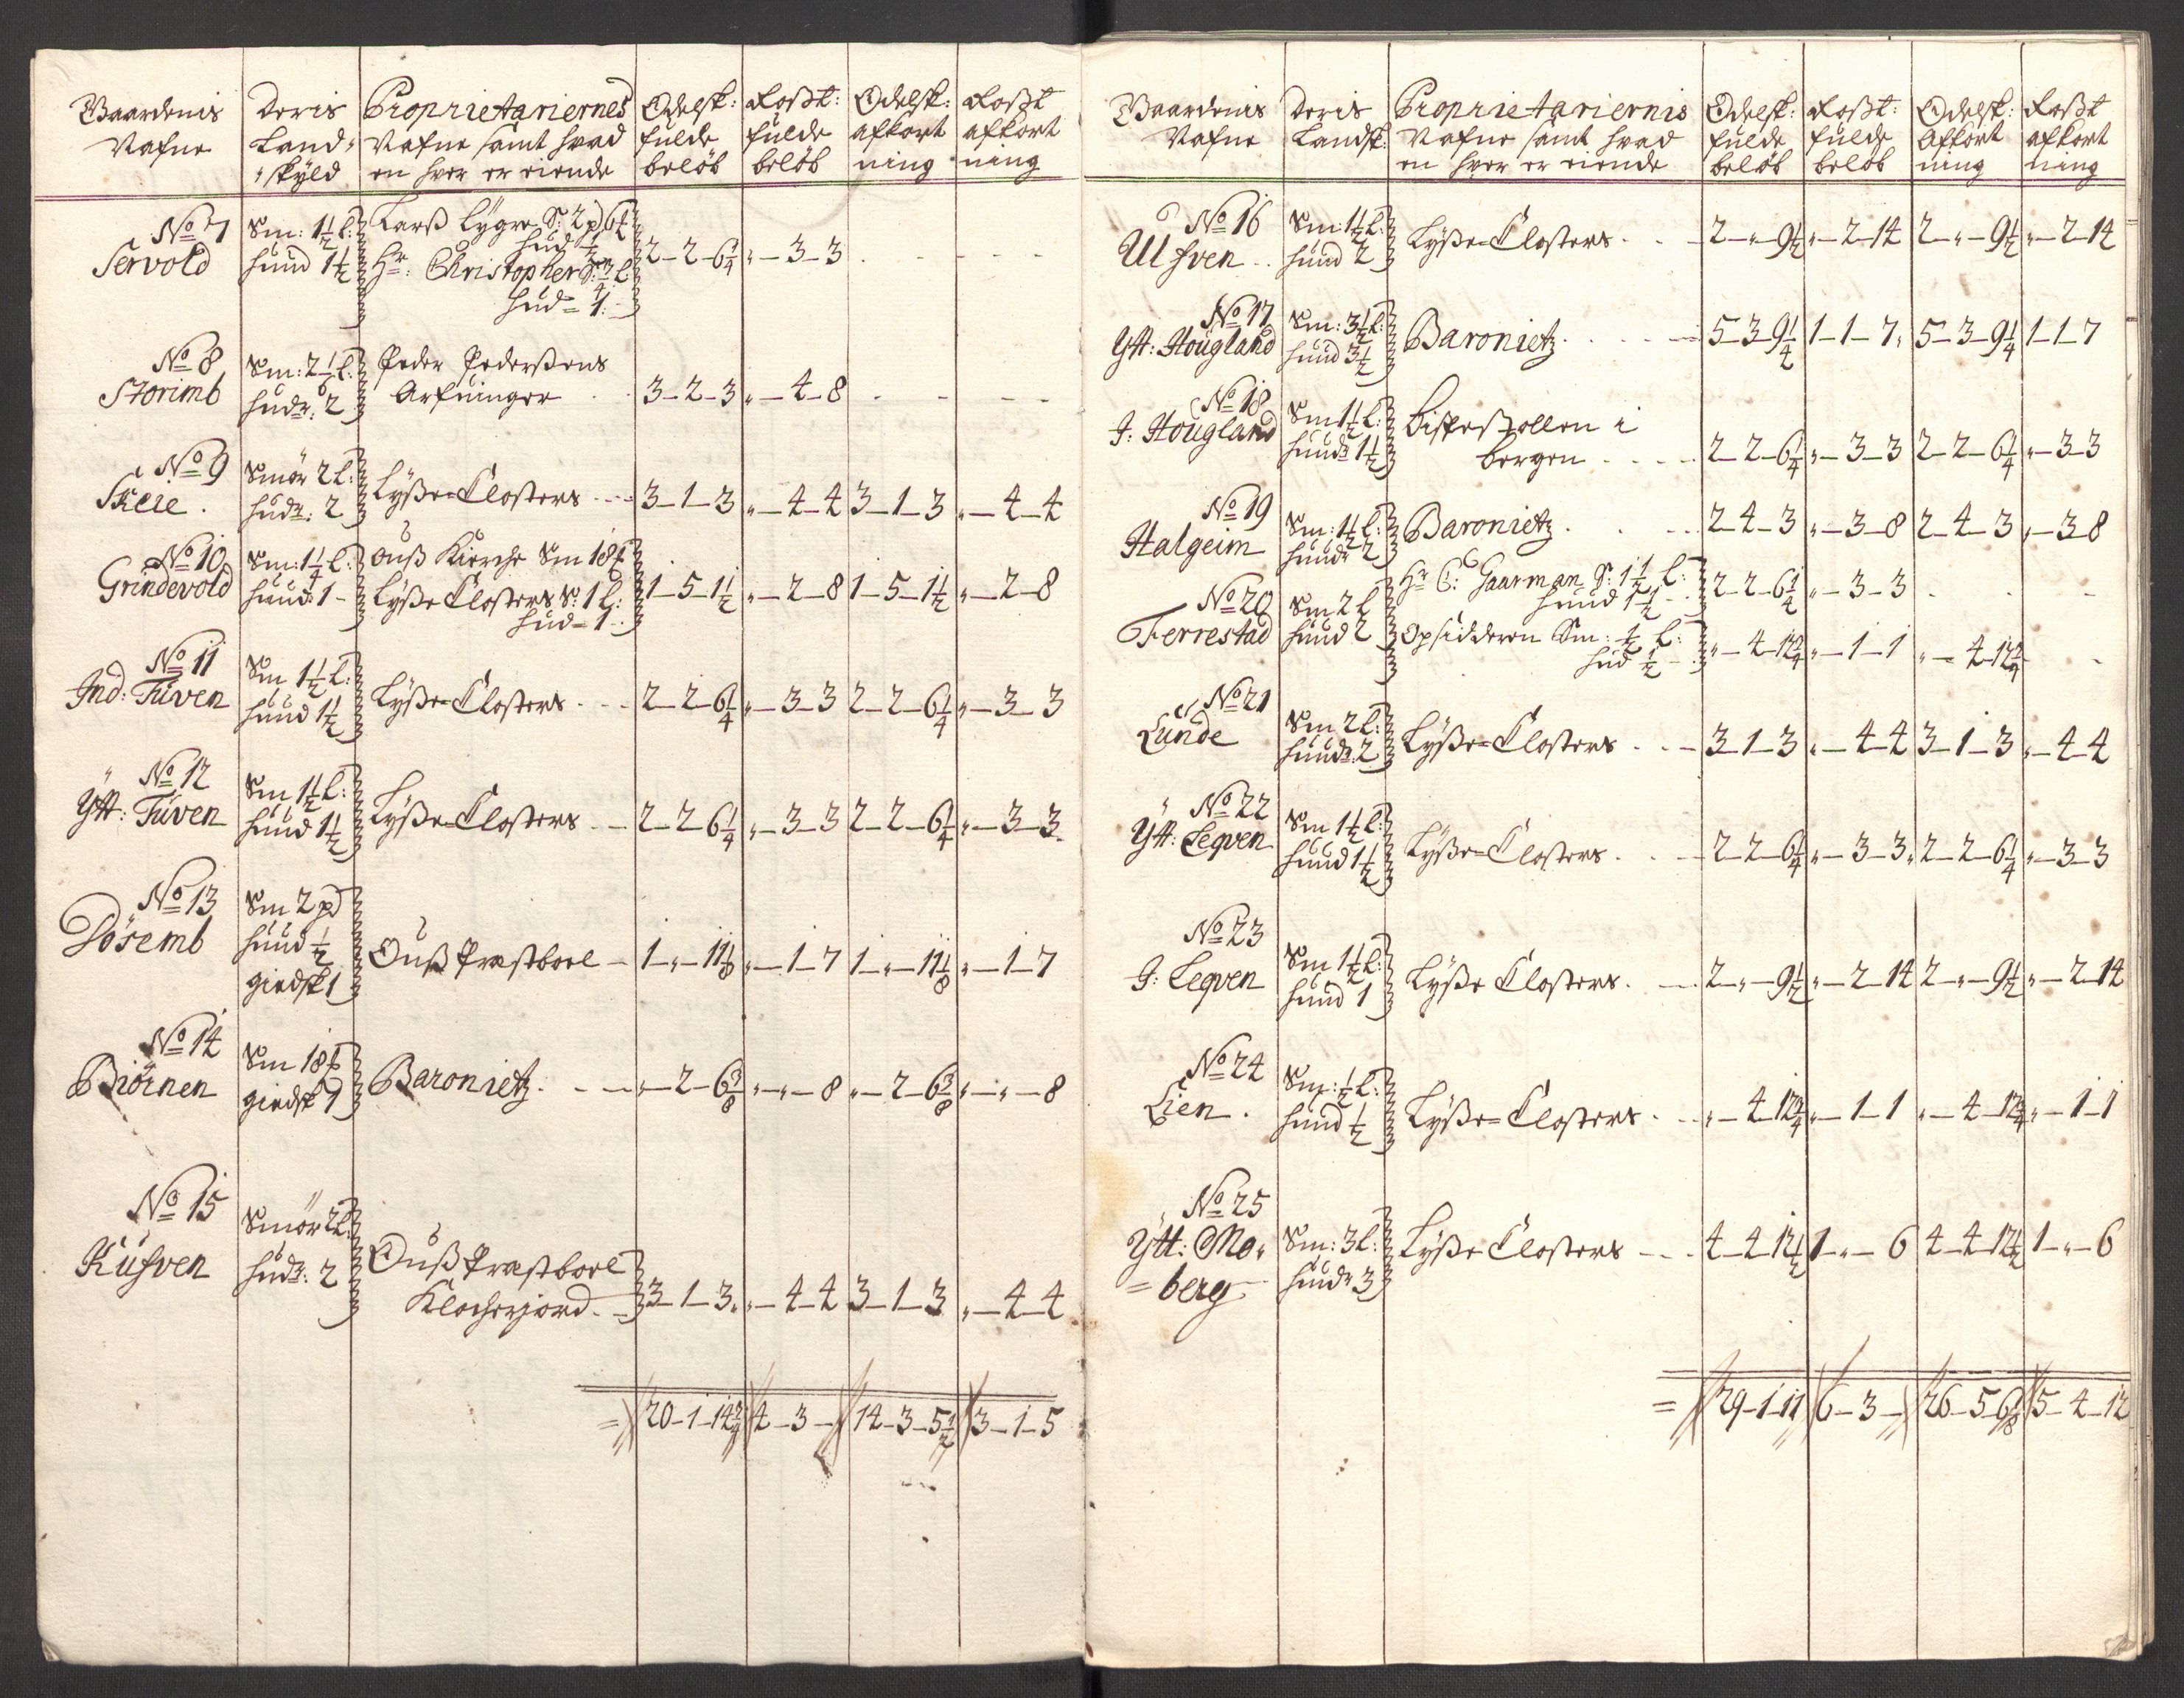 Gaardenis Nafne
Deris Land= skyld
Proprietariernes Nafne samt hvad en hver er eiende
Odelsk: fulde beløb
Roßt: fulde beløb
Odelsk: afkort ning
Roßt afkort ning
No 7 Servold
Sm: 1½ l: hund 1½
Larß Lygre S: 2 pd 6
hud ½
Hr: Christopher S: ¾ l
hud = 1.
2-2-6¼ „-3-3
No 8 Storimb
Sm: 2 l: hudr: 2
Peder Pederßens Arfuinger
3-2-3 „-4-8
No 9 Skeie.
Smør 2 l: hudr: 2
Lyße=Closters
3-1-3 „-4-4 3-1-3 „-4-4
No 10 Grindevold
Sm: 1¼ l: hund: 1-
Ouß Kierche Sm 18
Lyße Closters S: 1 l: hud= 1
1-5-1½ „-2-8 1-5-1½ „-2-8
No 11 Ind: Tüven
Sm 1½ l: hund 1½
Lyße=Closters
2-2-6¼ „-3-3 2-2-6¼ „-3-3
No 12 Ytt: Tüven
Sm 1½ l: hund 1½
Lyße=Closters
2-2-6¼ „-3-3 2-2-6¼ „-3-3
No 13 Døsemb
Sm 2 pd hund ½ giedsk 1
Ouß Præstboel
1-„-11⅛ „-1-7 1-„-11⅛ „-1-7
No 14 Biörnen
Sm 18 giedsk 1
Baronietz.
„-2-6⅜ „-„-8 „-2-6⅜ „-„-8
No 15 Kufven
Smör 2 l: hudr: 2
Ouß Præstboel Klocherjord.
3-1-3 „-4-4 3-1-3 „-4-4
= 20-1-14¾ 4-3- 14-3-5½ 3-1-5
Gaardenis Nafne
Deris Landsk:
Proprietariernis Nafne samt hvad en hver er eiende
Odelsk: fulde beløb
Roßt: fulde beløb
Odelsk: Afkort ning
Roßt afkort ning
No 16 Ulfven
Sm: 1½ l: hund 2
Lyße=Closters
2-„-9½ „-2-14 2-„-9½ „-2-14
No 17 Ytt: Høugland
Sm: 3½ l: hund 3½
Baronietz
5-3-9¼ 1-1-7. 5-3-9¼ 1-1-7
No 18 J: Høugland
Sm 1½ l: hund: 1½
Bispestollen i bergen
2-2-6¼ „-3-3 2-2-6¼ „-3-3
No 19 Halgeim
Sm: 1½ l: hund: 2
Baronietz
2-4-3 „-3-8 2-4-3 „-3-8
No 20 Ferrestad
Sm 2 l hund 2
Hr C: Gaarman S: 1½ l: hund 1½
2-2-6¼ „-3-3
Opsidderen Sm: ½ l: hud ½
„-4-12¾ „-1-1 „-4-12¾
No 21 Lünde
Sm 2 l: hund: 2
Lyße=Closters
3-1-3 „-4-4 3-1-3 „-4-4
No 22 Ytt: Leqven
Sm 1½ l: hund 1½
Lyße=Closters
2-2-6¼ „-3-3 2-2-6¼ „-3-3
No 23 J: Leqven
Sm 1½ l: hund 1
Lyße Closters
2-„-9½ „-2-14 2-„-9½ „-2-14
No 24 Lien.
Sm: ½ l: hund ½
Lyße=Closters
„-4-12¾ „-1-1 „-4-12¾ „-1-1
No 25 Ytt: Mo= =berg
Sm: 3 l: hund: 3
Lyße Closters
4-4-12½ 1-„-6 4-4-12½ 1-„-6
= 29-1-11 6-3- 26-5-6⅛ 5-4-12